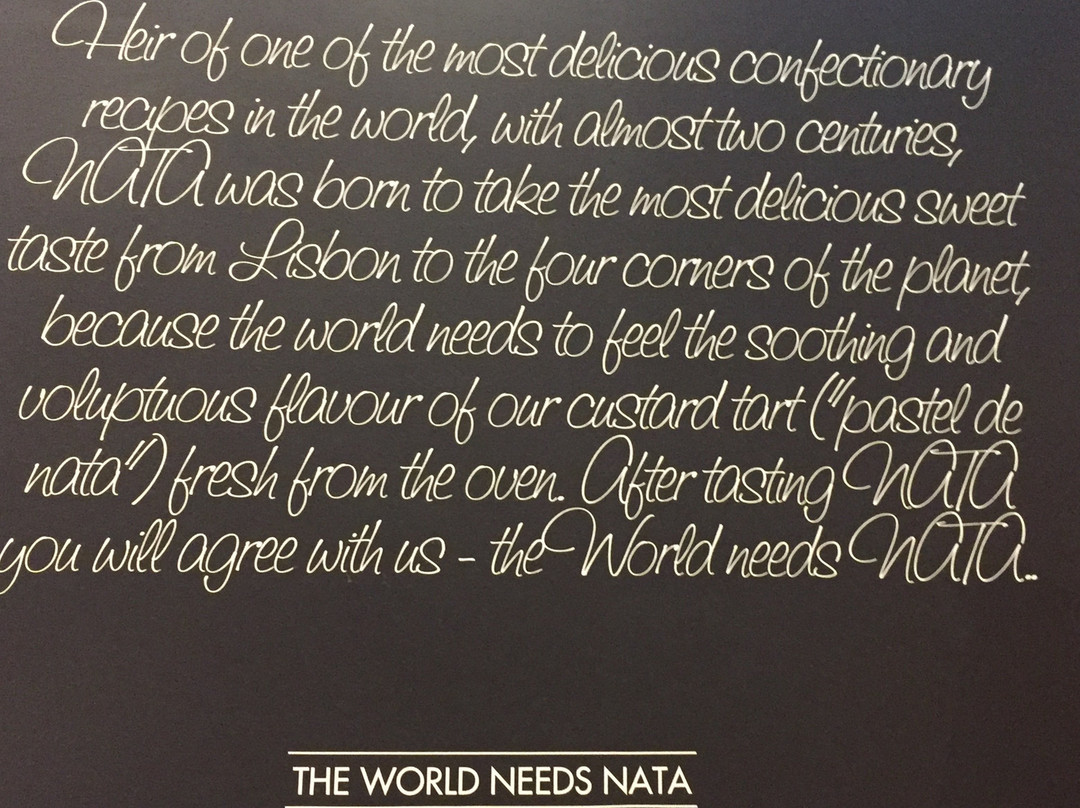 Heir of one of the most delicious confectionary
recipes in the world, with almost two centuries,
NATA was born to take the most delicious sweet
taste from Lisbon to the four corners of the planet,
because the world needs to feel the soothing and
voluptuous flavour of our custard tart ("pastel de
nata") fresh from the oven. After tasting NATA
you will agree with us - the World needs NATA..
THE WORLD NEEDS NATA